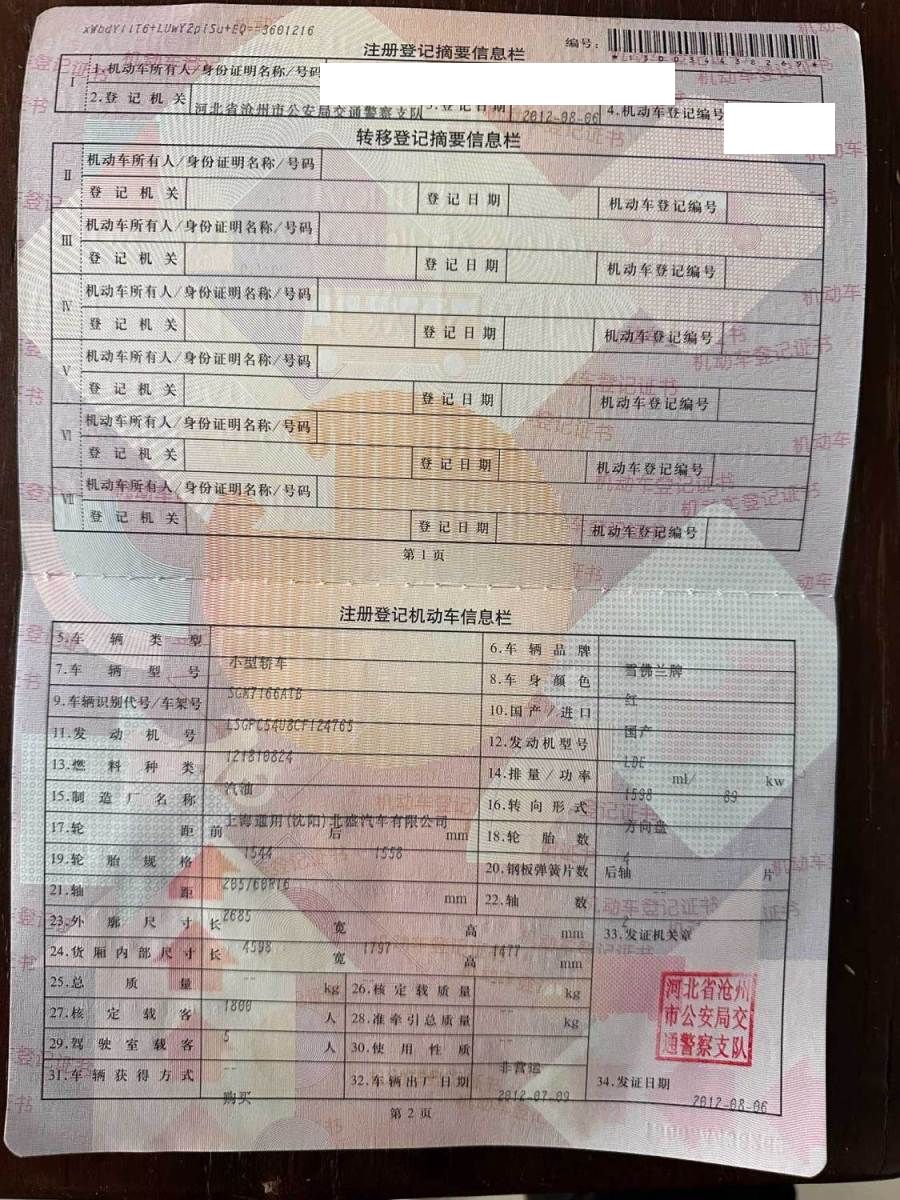 xWbdYiiT6+LUwY2piSu+EQ==3601216
注册登记摘要信息栏
编号:
I
1.机动车所有人/身份证明名称/号码
2.登记机关 河北省沧州市公安局交通警察支队 3.登记日期 2012-08-06 4.机动车登记编号
转移登记摘要信息栏
II 机动车所有人/身份证明名称/号码
登记机关 登记日期 机动车登记编号
III 机动车所有人/身份证明名称/号码
登记机关 登记日期 机动车登记编号
IV 机动车所有人/身份证明名称/号码
登记机关 登记日期 机动车登记编号
V 机动车所有人/身份证明名称/号码
登记机关 登记日期 机动车登记编号
VI 机动车所有人/身份证明名称/号码
登记机关 登记日期 机动车登记编号
VII 机动车所有人/身份证明名称/号码
登记机关 登记日期 机动车登记编号
第1页
注册登记机动车信息栏
5.车辆类型 小型轿车 6.车辆品牌 雪佛兰牌
7.车辆型号 SGM7166ATB 8.车身颜色 红
9.车辆识别代号/车架号 LSGPC54U8CF124765 10.国产/进口 国产
11.发动机号 121810824 12.发动机型号 LDE
13.燃料种类 汽油 14.排量/功率 1598 ml/ 89 kw
15.制造厂名称 上海通用(沈阳)北盛汽车有限公司 16.转向形式 方向盘
17.轮距 前 1544 后 1558 mm 18.轮胎数 4
19.轮胎规格 205/60R16 20.钢板弹簧片数 后轴 -- 片
21.轴距 2685 mm 22.轴数 2
23.外廓尺寸 长 4598 宽 1797 高 1477 mm 33.发证机关章
24.货厢内部尺寸 长 -- 宽 -- 高 -- mm
25.总质量 1800 kg 26.核定载质量 -- kg
27.核定载客 5 人 28.准牵引总质量 -- kg
29.驾驶室载客 -- 人 30.使用性质 非营运
31.车辆获得方式 购买 32.车辆出厂日期 2012-07-09 34.发证日期 2012-08-06
河北省沧州
市公安局交
通警察支队
第2页